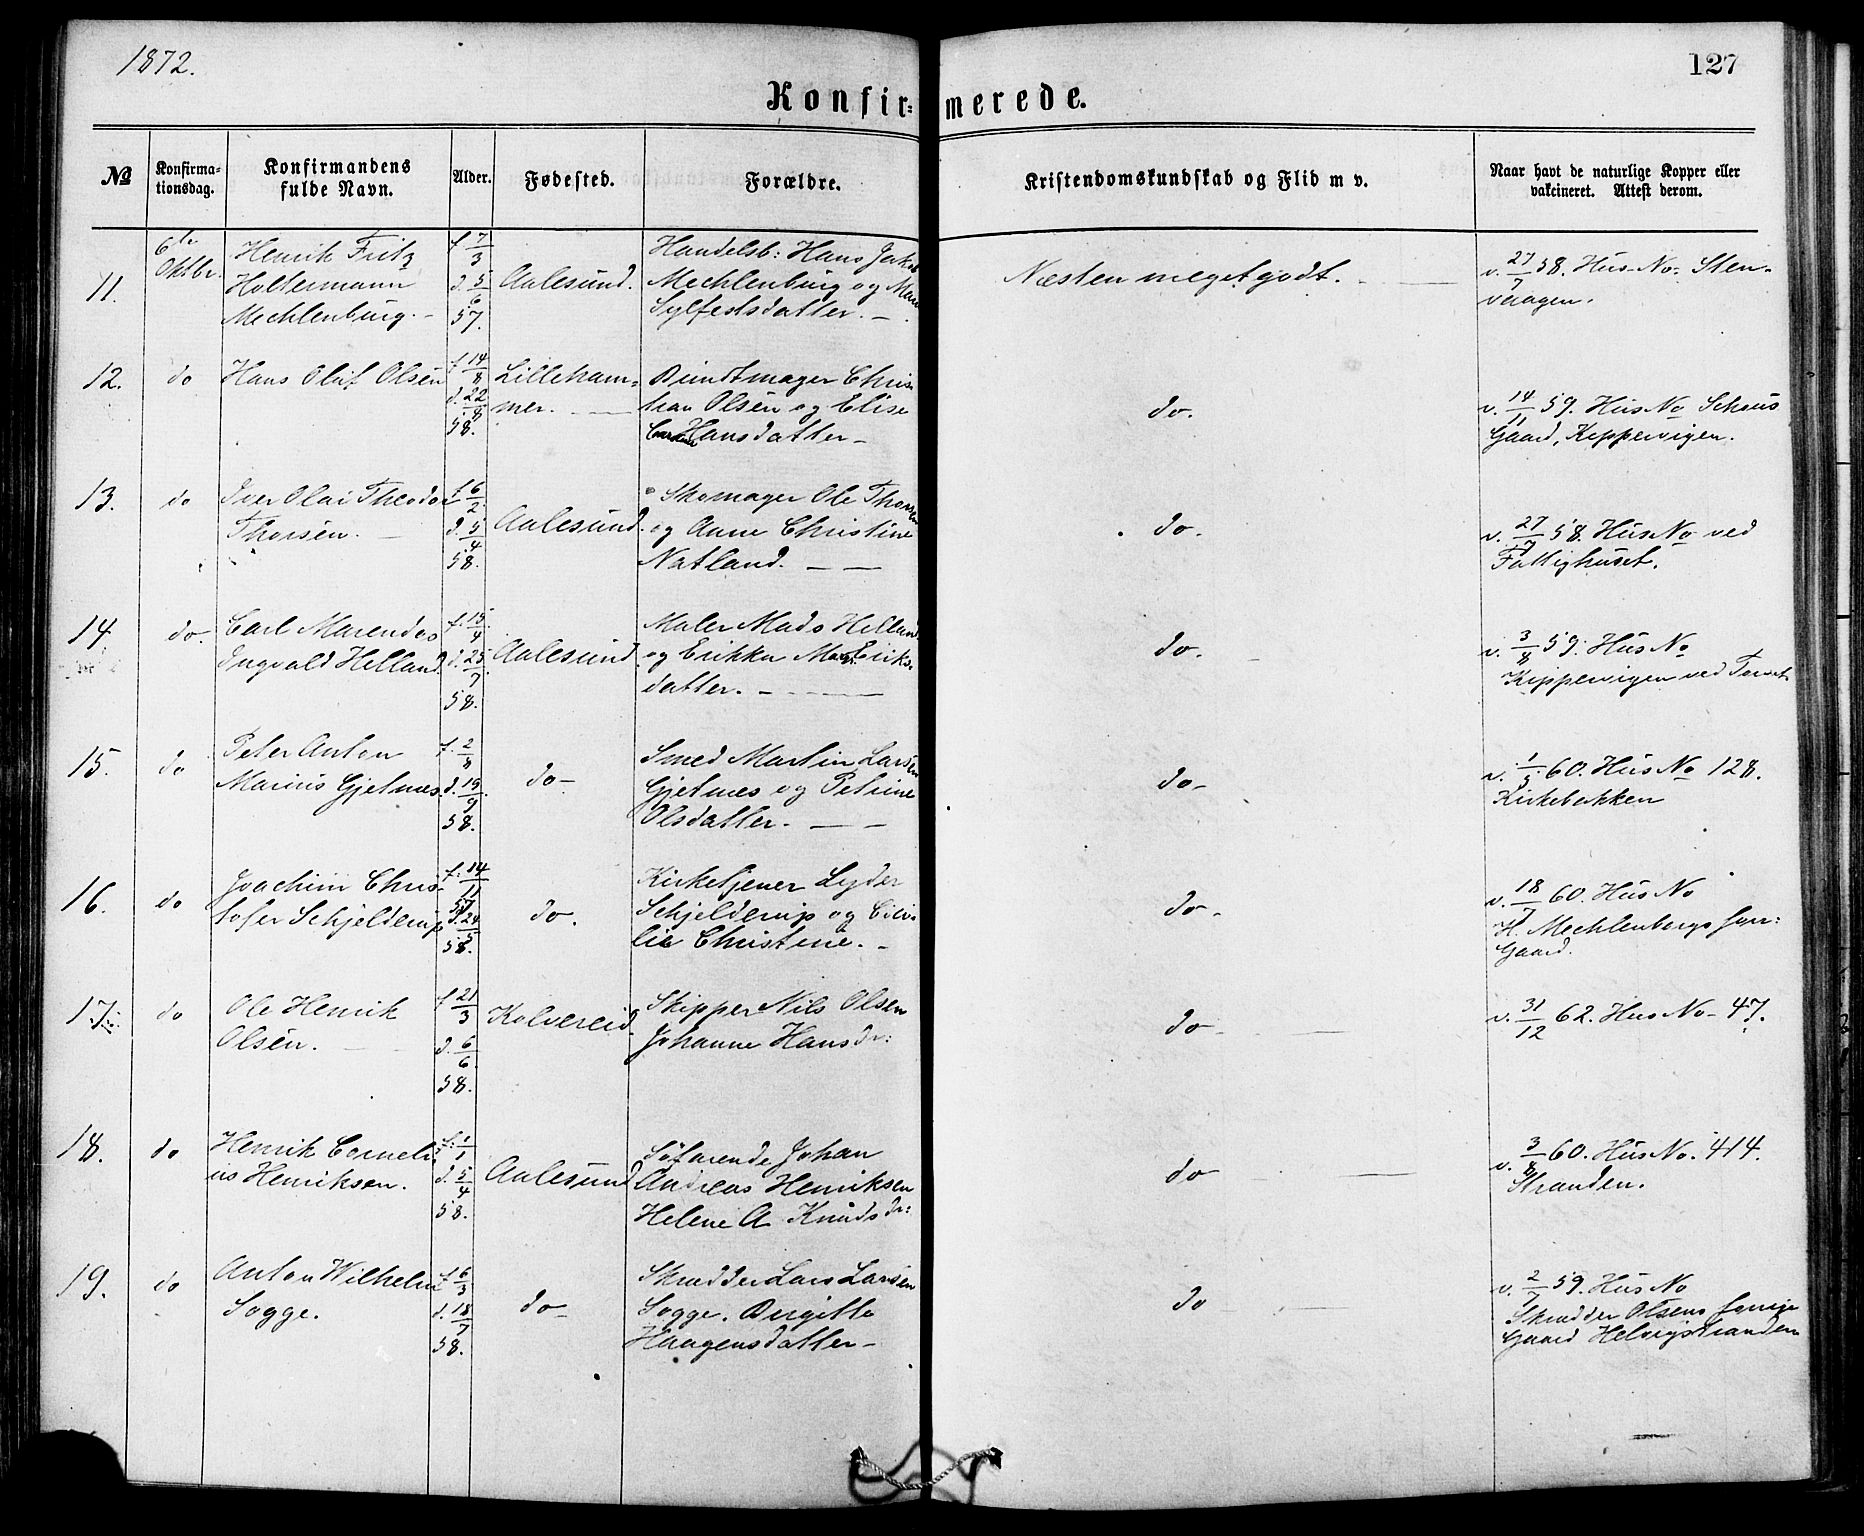 1872.
127
Konfir= merede.
№
Konfirma=
tionsdag.
Konfirmandens
fulde Navn.
Alder.
Fødested.
Forældre.
Kristendomskundskab og Flid m v.
Naar havt de naturlige Kopper eller
vakcineret. Attest derom.
11.
6te
Oktbr.
Henrik Fritz
Holtermann
Mechlenburg. -
f 7/3
d. 5/6
57.
Aalesund.
Handelsb: Hans Jakob
Mechlenburg og Maren
Sylfestsdatter. -
Næsten meget godt.
v. 27/7 58. Hus-No: Sten-
vaagen.
12.
do
Hans Oluf Olsen
f 14/8
d. 22/8
58.
Lilleham=
mer.
Bundtmager Chris
tian Olsen og Elise
Hansdatter -
do.
v. 14/11 59. Hus No Schous
Gaard, Keppervigen.
13.
do
Iver Olai Theodor
Thorsen.
f 6/2
d. 5/4
58.
Aalesund.
Skomager Ole Thorsen
og Anne Christine
Natland. - -
do.
v. 27/7 58. Hus No ved
Fattighuset.
14
do.
Carl Marendos
Ingvald Helland.
f. 15/4
d. 25/7
58.
Aalesund
Maler Mads Helland
og Erikka Mar. Eriks-
datter. -
do.
v. 3/8 59. Hus No
Kippervigen ved Torvet
15.
do
Peter Anton
Marius Gjetnæs.
f. 2/8
d. 19/9
58.
do-
Smed Martin Larsen
Gjetnæs og Petrine
Olsdatter. - -
do-
v. 1/5 60. Hus No 128.
Kirkebakken
16.
do
Joachim Chris-
tofer Schjelderup
f. 14/11
57
d. 24/5
58.
do.
Kirketjener Lyder
Schjelderup og Cilis
lia Christine. -
do-
v. 18/7 60. Hus No
H. Mechlenborgs
Gaard.
17.
do
Ole Henrik
Olsen.
f 21/3
d. 6/6
58.
Kolvereid
Skipper Nils Olsen
Johanne Hansdr:
do-
v. 31/12 62. Hus No- 47.
18.
do
Henrik Corneli
us Henriksen.
f. 1/1
d. 5/4
58.
Aalesund
Søfarende Johan
Andreas Henriksen
Helene A. Knudsdr:
do
v. 3/8 60. Hus No. 414.
Stranden.
19.
do
Anton Wilhelm
Sogge.
f 6/3
d. 18/7
58.
do-
Skrædder Lars Larsen
Sogge. Birgitte
Haagensdatter -
do
v. 2/7 59. Hus No
Skrædder Olsens
Gaard Helvigstranden